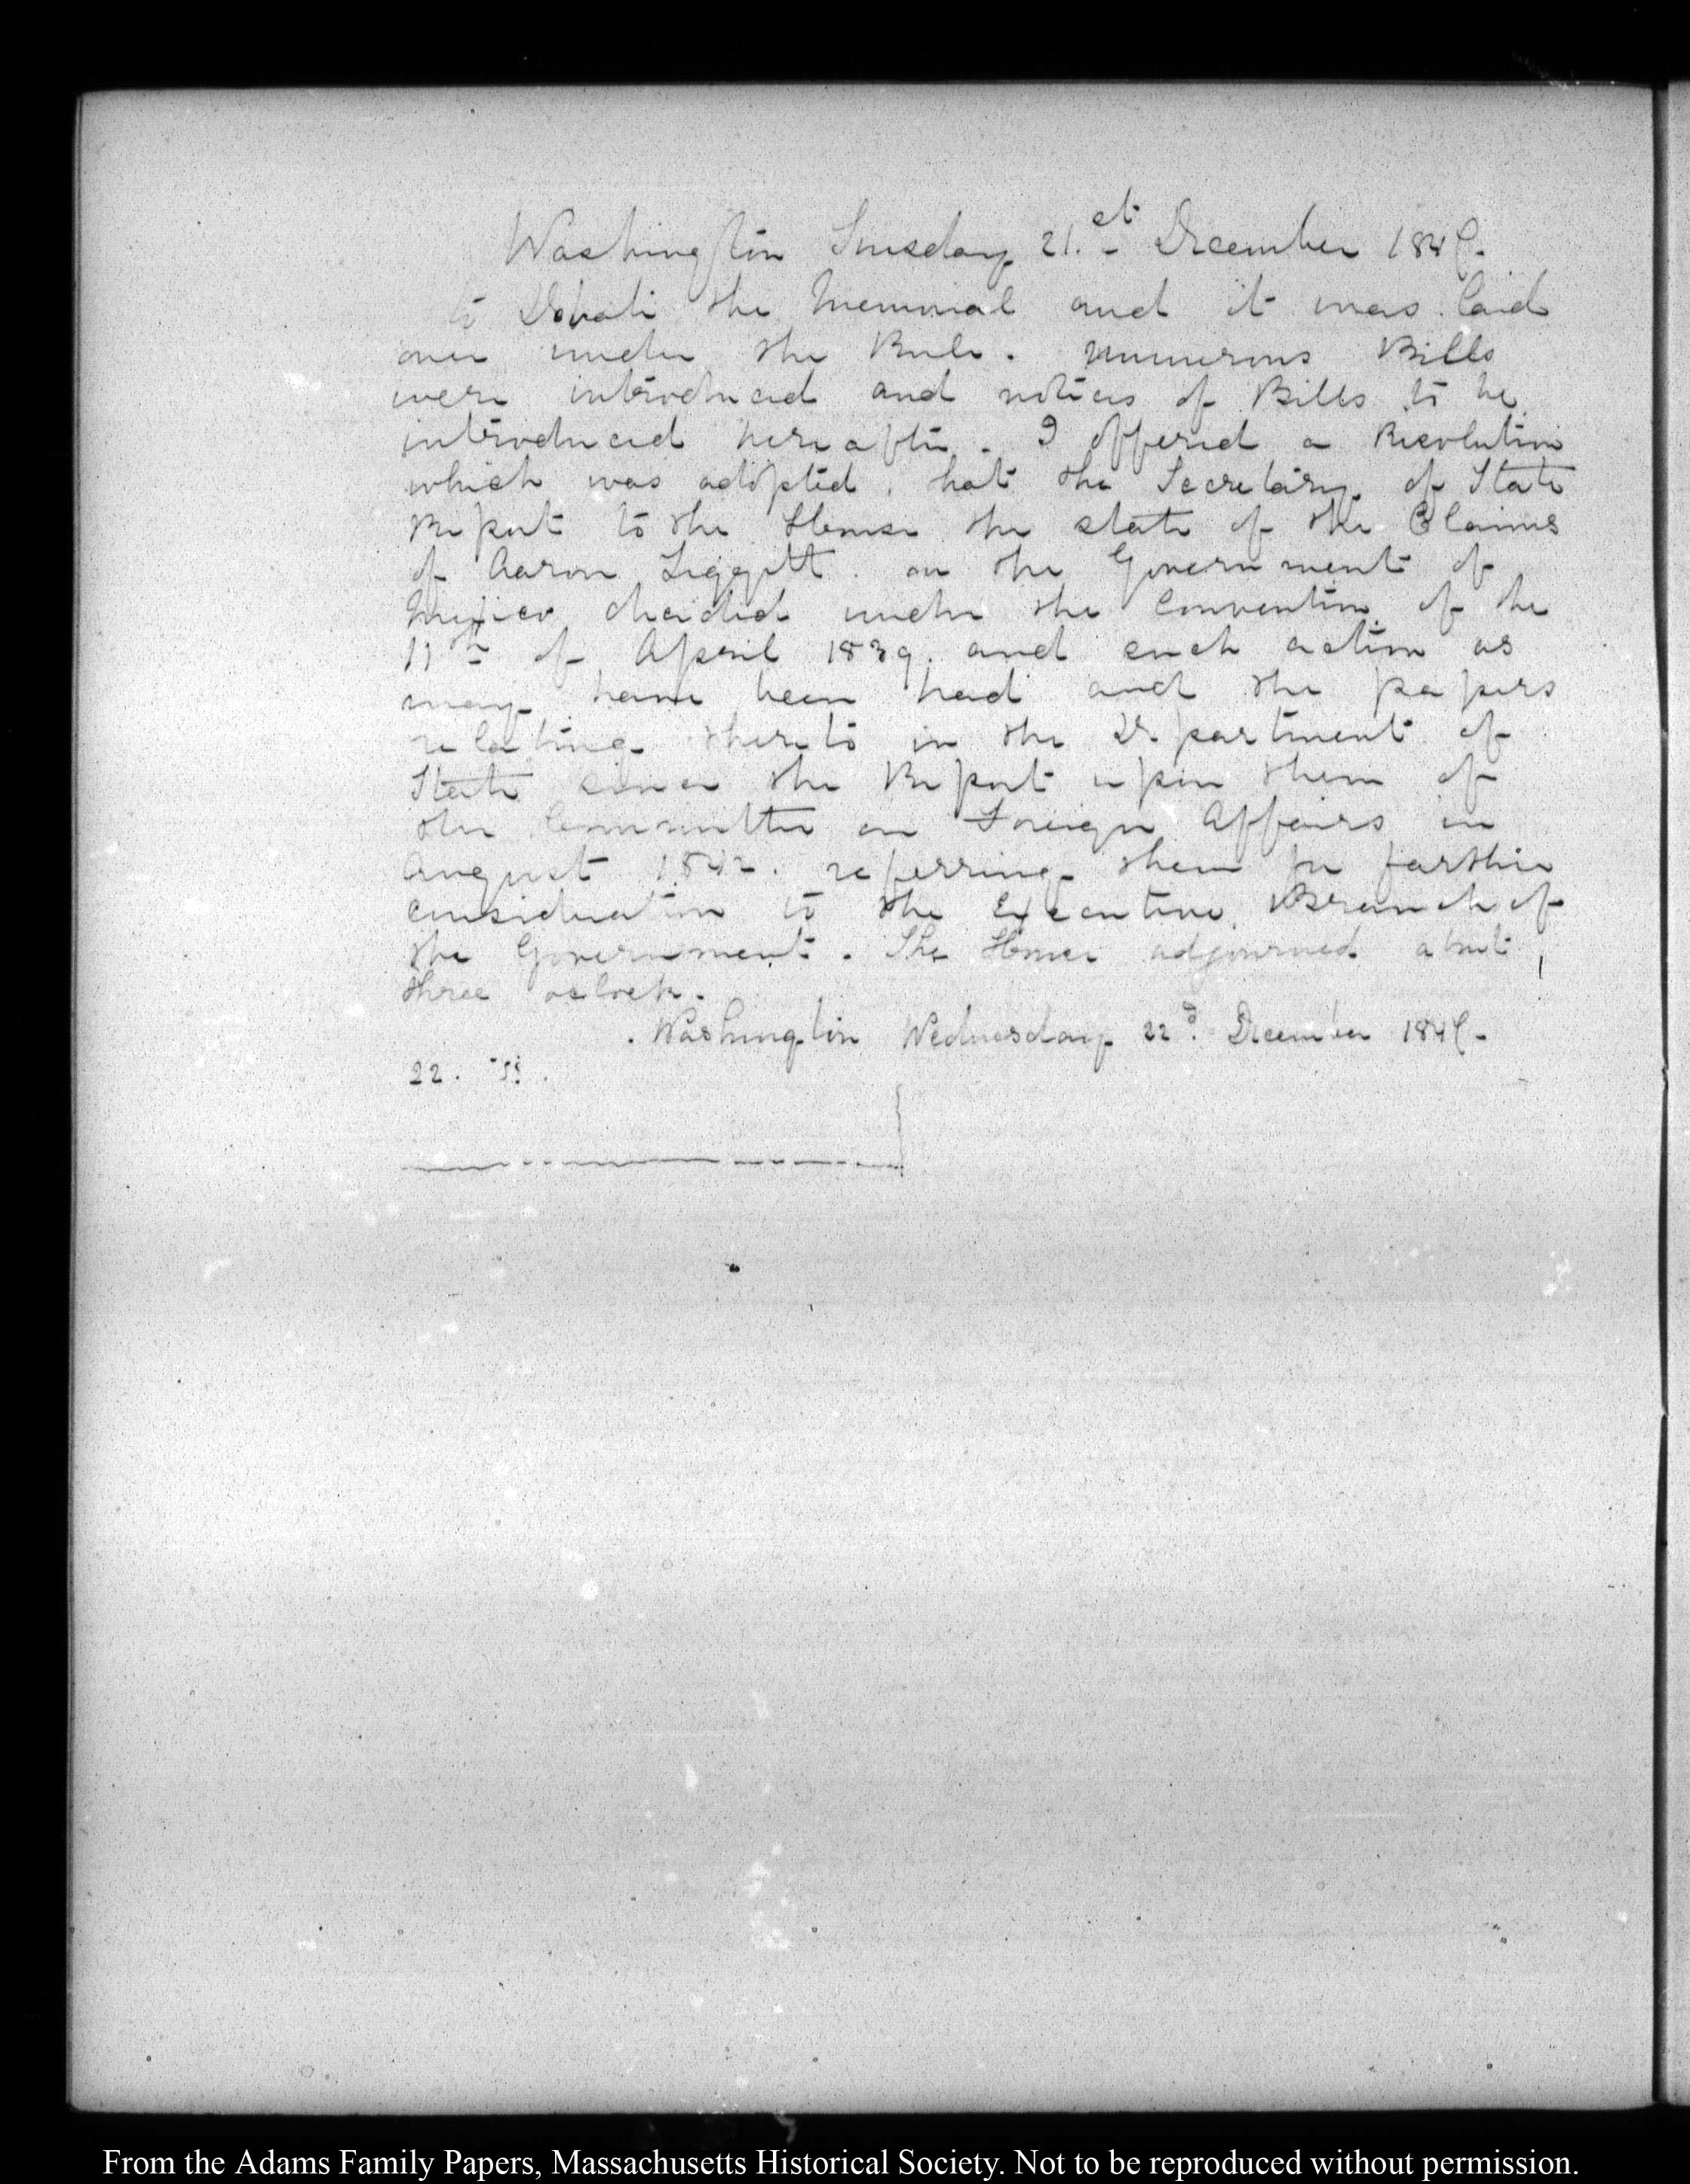 Washington Tuesday 21.st December 1847.
to Debate the Memorial and it was laid
over under the Rule. numerous Bills
were introduced and notices of Bills to be
introduced hereafter. I offered a Resolution
which was adopted, that the Secretary of State
Report to the House the state of the Claims
of Aaron Leggett on the Government of
Mexico decided under the Convention of the
11th of April 1839. and such action as
may have been had and the papers
relating thereto in the Department of
State since the Report upon them of
the Committee on Foreign Affairs in
August 1842. referring them for further
consideration to the Executive Branch of
the Government. The House adjourned about
three oclock.
Washington Wednesday 22d. December 1847.
22.
From the Adams Family Papers, Massachusetts Historical Society. Not to be reproduced without permission.